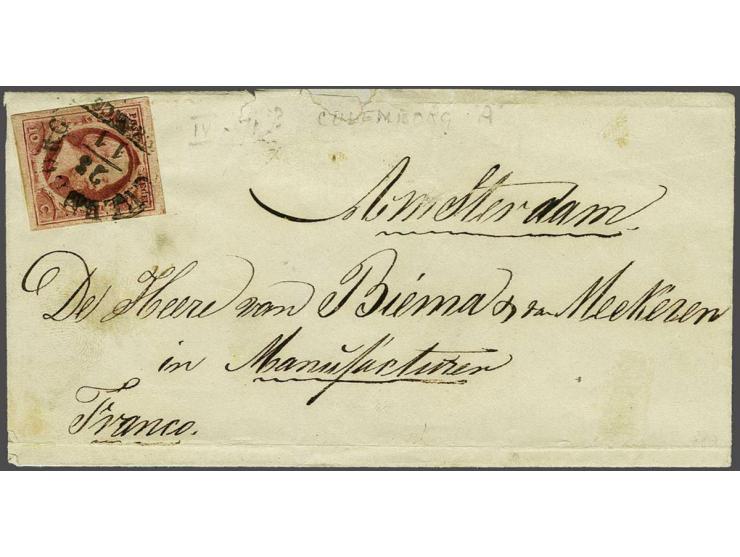 CULEMBORG A
28
11
10
C
Amsterdam.
De Heere van Biema & van Meekeren
in Manufacturen
Franco.